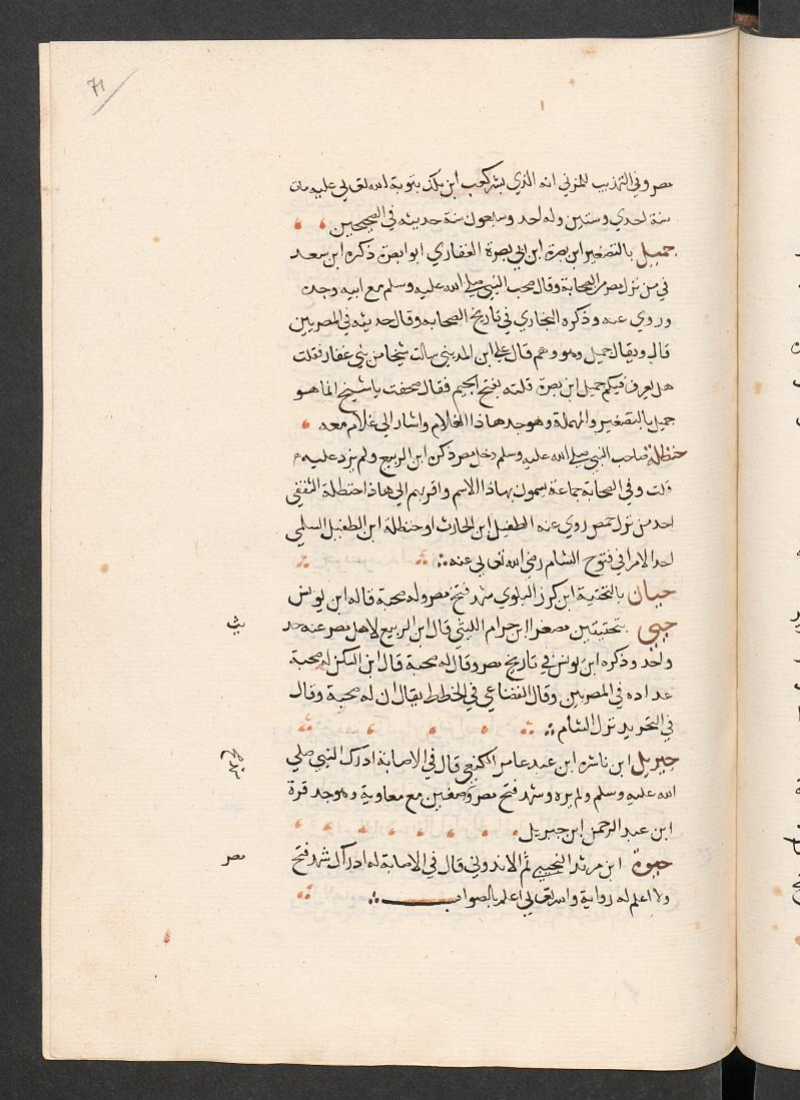 71
مصر وفي التهذيب للمزني انه الذي بشر كعب ابن مالك بتوبة الله تعالى عليه مات
سنة احدي وستين وله احد وسبعون سنة حديثه في الصحيحين
حميل بالتصغير ابن بصرة ابن ابي بصرة الغفاري ابو ابصرة ذكره ابن سعد
في من نزل بصر من الصحابة وقال صحب النبي صلى الله عليه وسلم مع ابيه وجده
وروي عنه وذكره البخاري في تاريخ الصحابه وقال حديثه في المصريين
قال ويقال جميل وهو وهم قال علي ابن المديني سالت شيخا من بني غفار فقلت
هل يعرف فيكم جميل ابن بصرة قلته بفتح الجيم فقال صحفت يا شيخ انما هو
حميل بالتصغير والمهملة وهو جد هاذا الغلام واشار الي غلام معه
حنظلة صاحب النبي صلى الله عليه وسلم دخل مصر ذكره ابن الربيع ولم يزد عليه
قلت وفي الصحابة جماعة يسمون بهاذا الاسم واقربهم الي هاذا حنظلة الثقفي
احد من نزل حمص روي عنه الطفيل ابن الحارث او حنظلة ابن الطفيل السلمي
احد الامرا في فتوح الشام رضي الله تعالى عنه
حيان بالتحتية ابن كرز البلوي شهد فتح مصر وله صحبة قاله ابن يونس
حيي بتحتيتين مصغر ابن حرام الليثي قال ابن الربيع لاهل مصر عنه حد
يث
واحد وذكره ابن يونس في تاريخ مصر وقال له صحبة قال ابن السكن له صحبة
عداده في المصريين وقال القضاعي في الخطط يقال ان له صحبة وقال
في التجريد نزل الشام
حيويل ابن ناشره ابن عبد عامر الكنفي قال في الاصابة ادرك النبي صلي
الله عليه وسلم ولم يره وشهد فتح مصر وصفين مع معاوية وهو جد قرة
ابن عبد الرحمن ابن حيويل
حيوة ابن مرثد التجيبي ثم الاندوني قال في الاصابة له ادراك شهد فتح
مصر
ولا اعلم له رواية والله تعالى اعلم بالصواب